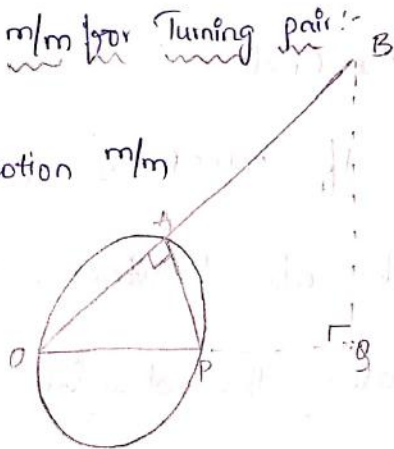 m/m for Turning pair:-
B
otion m/m
A
O
P
Q